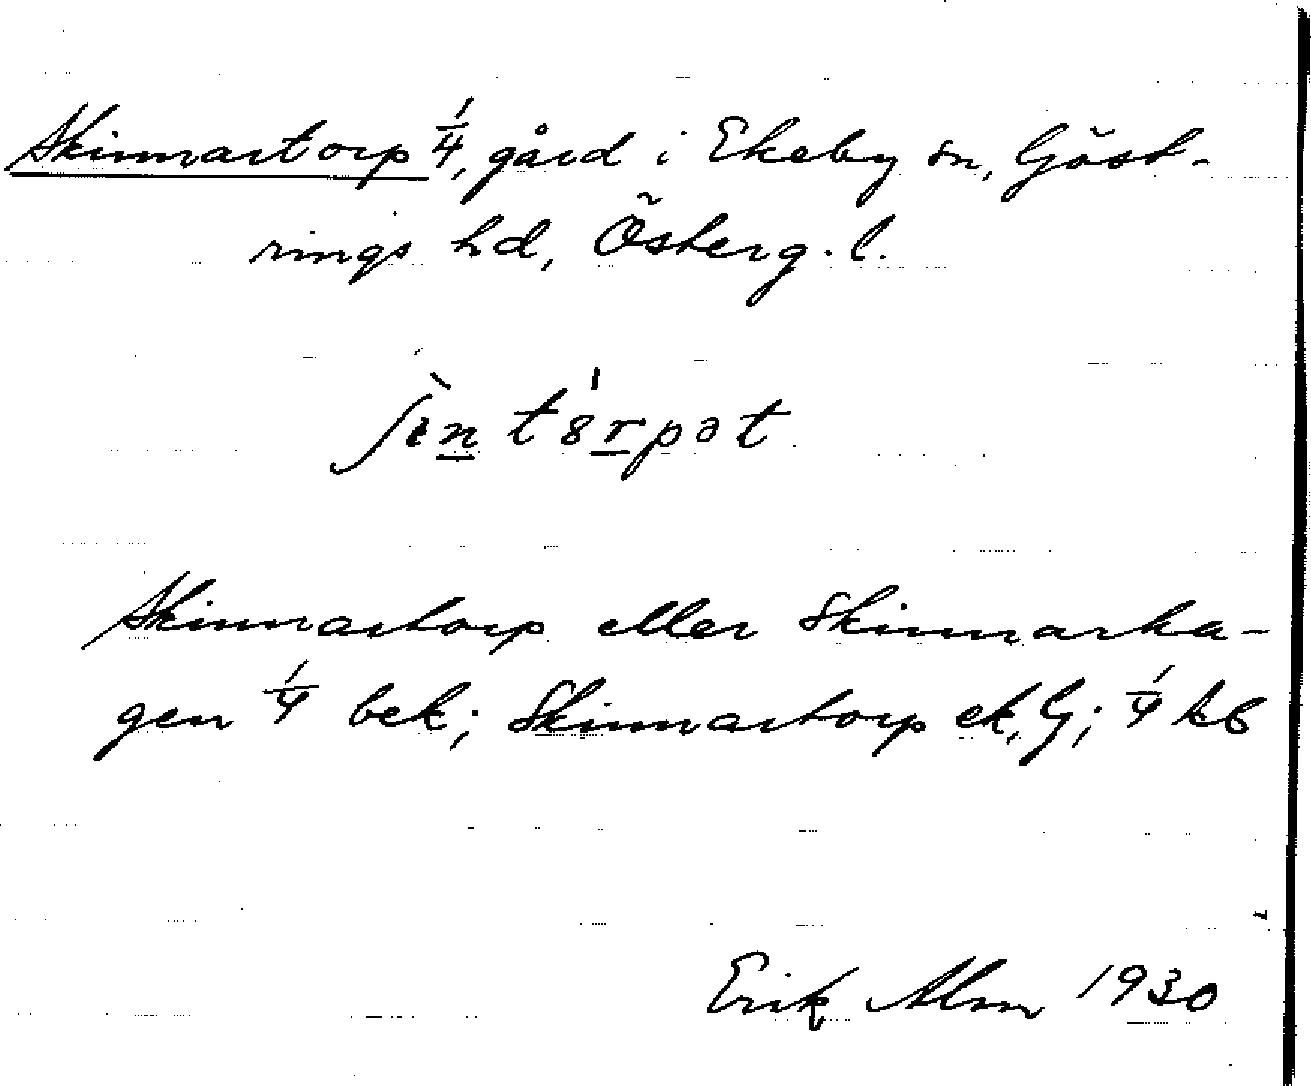 Skinnartorp 1/4, gård i Ekeby sn, Göst-
rings hd, Österg. l.
ʃìn tórpət
Skinnartorp eller Skinnarha-
gen 1/4 bek; Skinnartorp ek, G; 1/4 kb
Erik Alm 1930